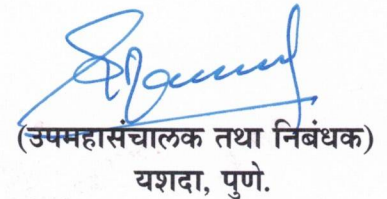 (उपमहासंचालक तथा निबंधक)
यशदा, पुणे.